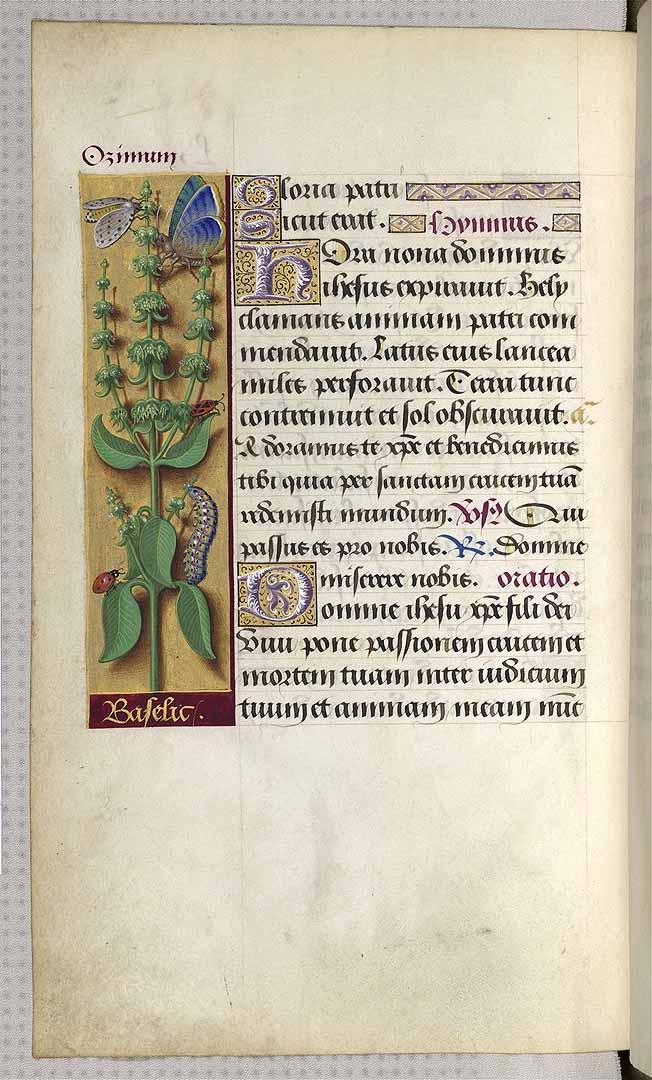 Ozimum
Gloria patri
Sicut erat. Hymnus.
Hora nona dominus
ihesus expirauit. Hely
clamans animam patri com
mendauit. Latus eius lancea
miles perforauit. Terra tunc
contremuit et sol obscurauit. a͞.
Adoramus te xp̄e et benedicimus
tibi quia per sanctam crucem tuā
redemisti mundum. Vs. Qui
passus es pro nobis. R. Domine
miserere nobis. oratio.
Domine ihesu xp̄e fili dei
viui pone passionem crucem et
mortem tuam inter iudicium
tuum et animam meam nūc
Baselic.